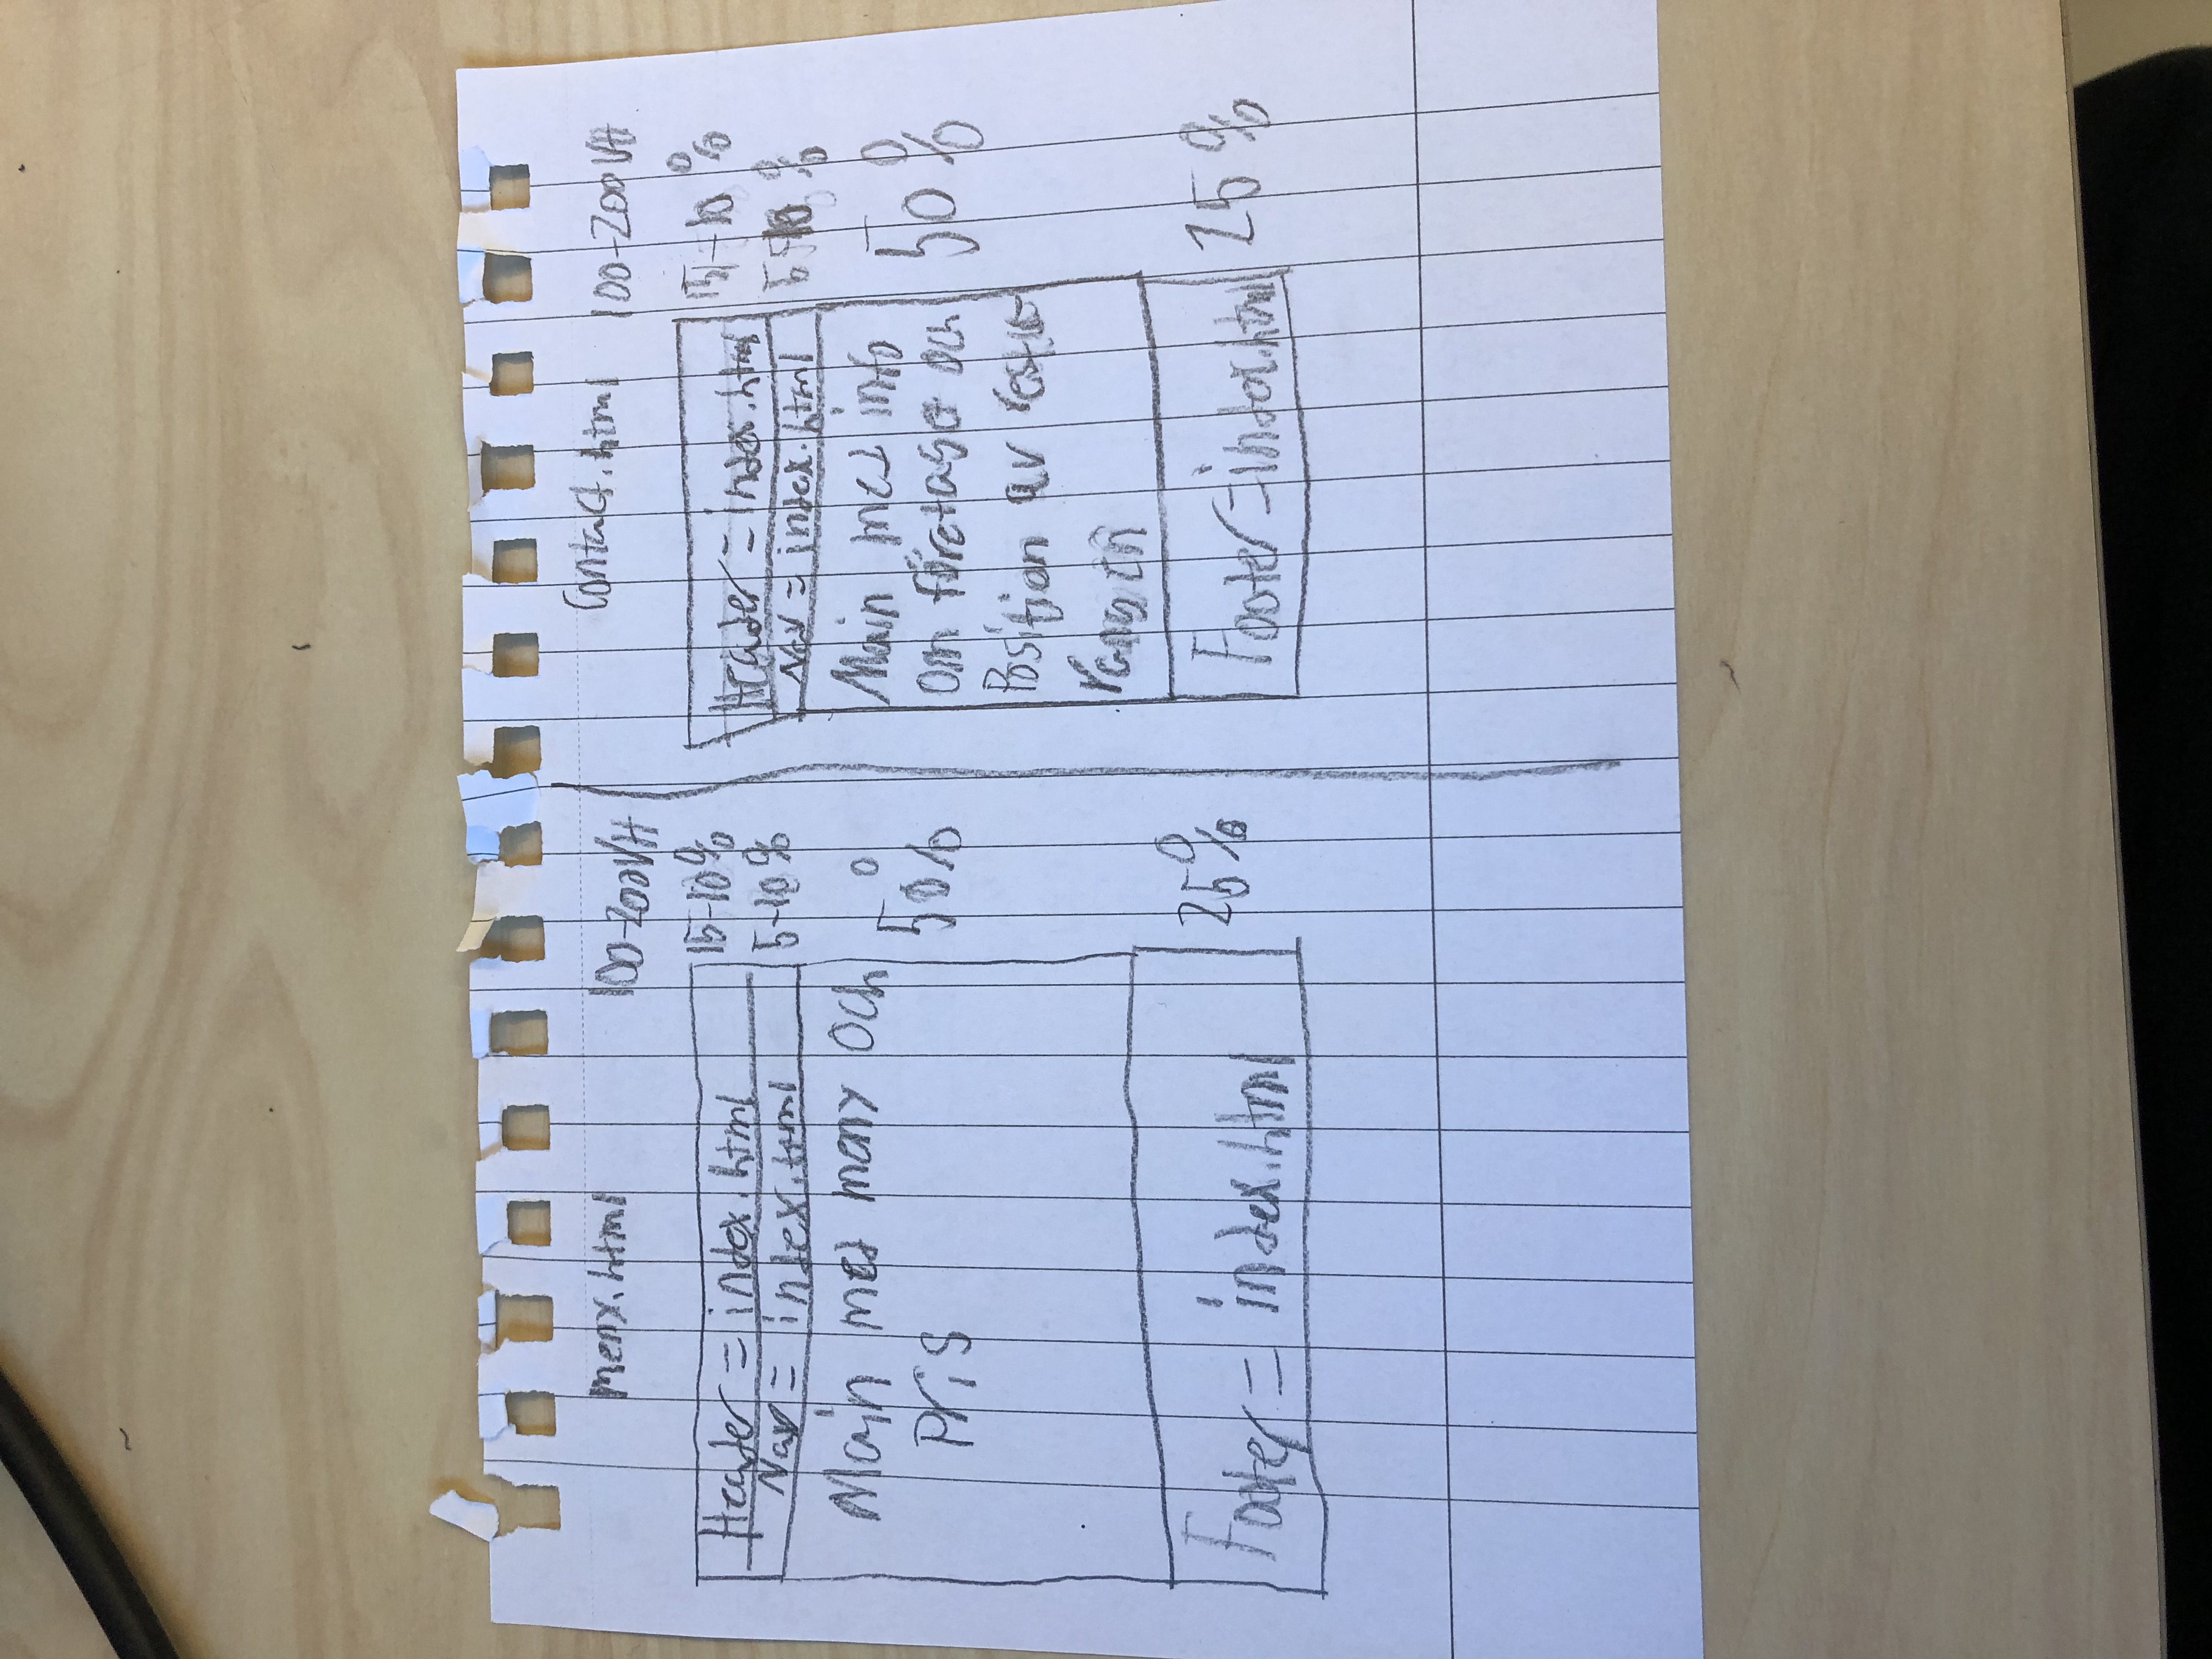 Meny.html
100-200VH
Header = index.html
15-10%
Nav = index.html
5-10%
Main med meny och
Pris
50%
Footer = index.html
25%
Contact.html
100-200VH
Header = index.html
15-10%
Nav = index.html
5-10%
Main med info
om företaget och
Position av restau-
rangen
50%
Footer = index.html
25%